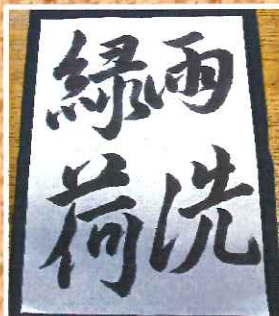 雨洗
緑荷